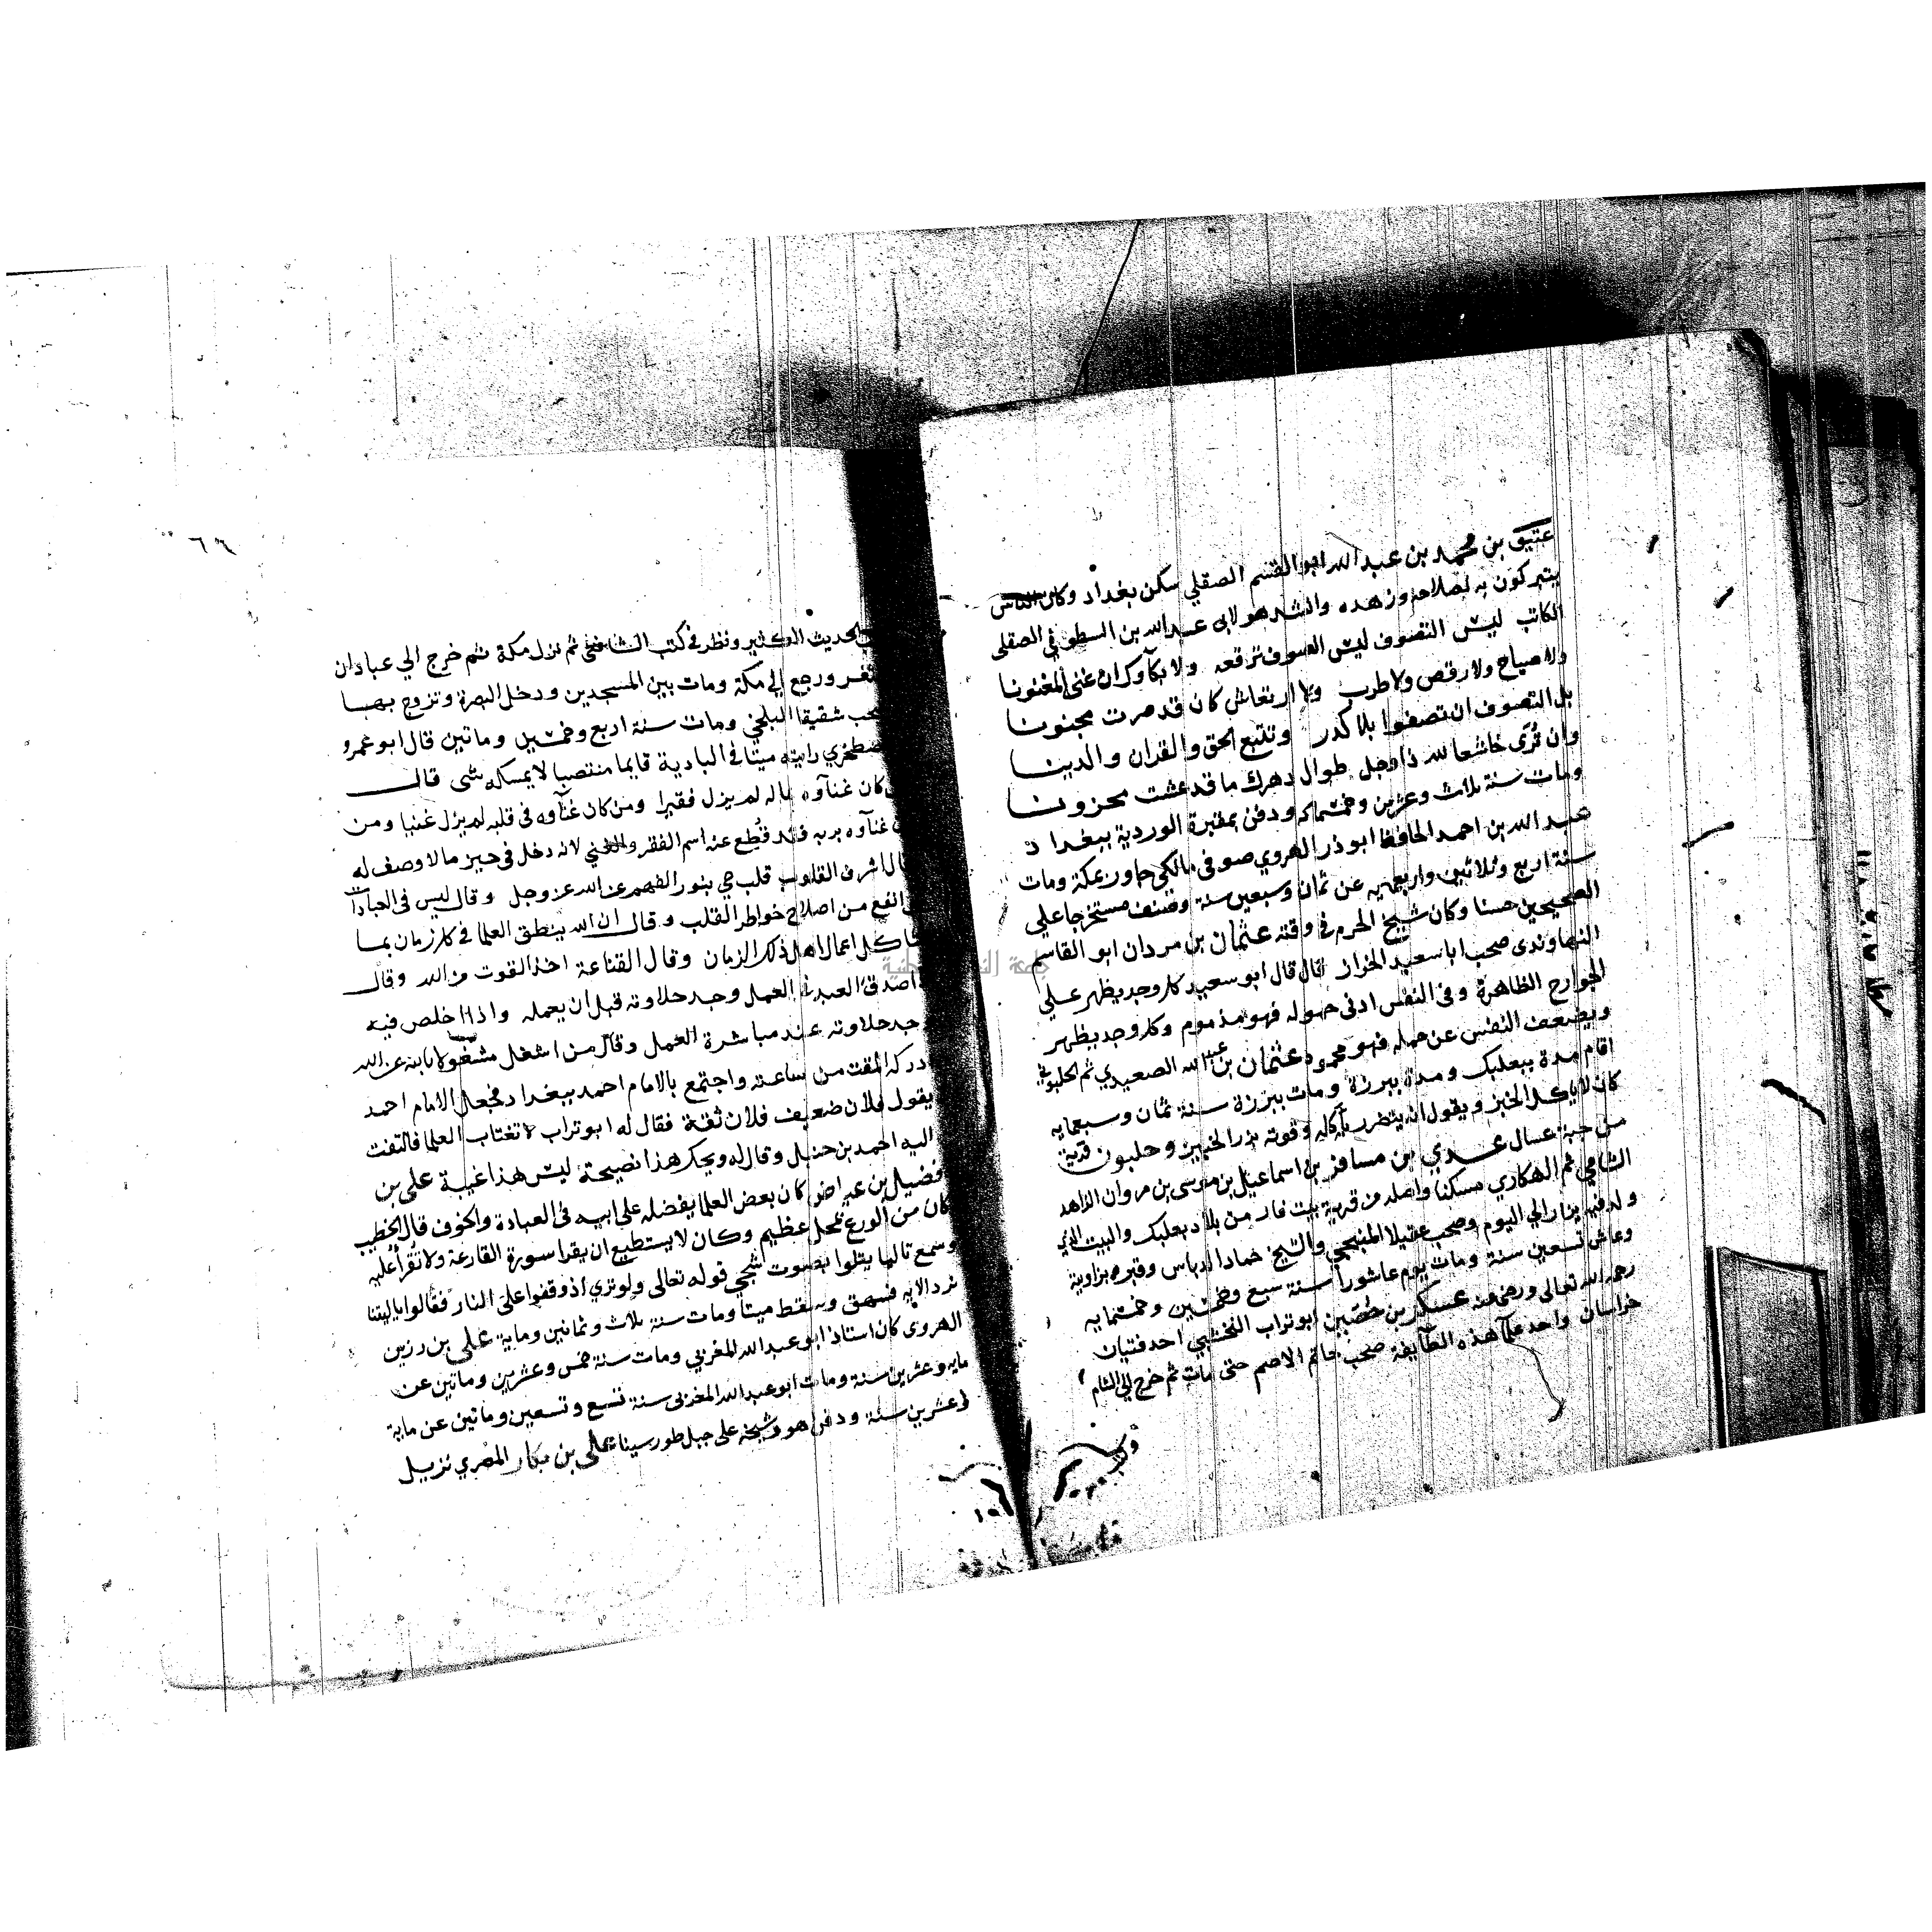 عتيق بن محمد بن عبد الله ابو القسم الصقلي سكن بغداد وكان الناس
يتبركون به لصلاحه وزهده وانشد هو لابي عبد الله بن السطوفي الصقلى
الكاتب ليس التصوف لبس الصوف ترقعه ولا بكآوك ان غنى المغنونا
ولا صياح ولا رقص ولا طرب ولا ارتعاش كان قد صرت مجنونا
بل التصوف ان تصفوا بلا كدر وتتبع الحق والقران والدينا
وان تُرى خاشعا لله ذا وجل طوال دهرك ما قد عشت محزونا
ومات سنة ثلاث وعشرين وخمسمائه ودفن بمقبرة الوردية ببغداد
عبد الله بن احمد الحافظ ابو ذر الهروي صوفى مالكى جاور بمكة ومات
سنة اربع وثلاثين واربعميه عن ثمان وسبعين سنة وصنف مستخرجا على
الصحيحين حسنا وكان شيخ الحرم فى وقته عثمان بن مردان ابو القاسم
النهاوندى صحب ابا سعيد الخراز قال قال ابو سعيد كل وجد يظهر على
الجوارح الظاهرة وفى النفس ادنى حموله فهو مذموم وكل وجد يظهر
ويضعف النفس عن حمله فهو محمود عثمان بن عبد الله الصعيدي ثم الحلبوني
اقام مدة ببعلبك ومدة ببرزة ومات ببرزة سنة ثمان وسبعمايه
كان لا ياكل الخبز ويقول انه يتضرر بآكله وقوته بزر الخبيز وحلبون قرية
من جبة عسال عدي بن مسافر بن اسماعيل بن موسى بن مروان الزاهد
الشامي ثم الهكاري مسكنا واصله من قرية بيت فار من بلاد بعلبك والبيت الذي
ولد فيه يزار الى اليوم وصحب عقيلا المنبجي والشيخ حماد الدباس وقبره بزاوية
وعاش تسعين سنة ومات يوم عاشورا سنة سبع وخمسين وخمسمايه
رحمه الله تعالى ورضى عنه عسكر بن حصين ابو تراب النخشبي احد فتيان
خراسان واحد علمآ هذه الطايفة صحب حاتم الاصم حتى مات ثم خرج الى الشام
وكتب
الحديث الكثير ونظر فى كتب الشافعي ثم نزل مكة ثم خرج الي عبادان
ورجع الى مكة ومات بين المسجدين ودخل البصرة وتزوج بها
شقيقا البلخي ومات سنة اربع وخمسين وماتين قال ابو عمرو
رايته ميتا فى البادية قايما منتصبا لا يمسكه شى قال
كان غنآوه بماله لم يزل فقيرا ومن كان غنآوه فى قلبه لم يزل غنيا ومن
غنآوه بربه فقد قُطع عنه اسم الفقر والغنى لانه دخل فى حيز ما لا وصف له
اشرف القلوب قلب حي بنور الفهم عن الله عز وجل وقال ليس فى العبادات
انفع من اصلاح خواطر القلب وقال ان الله ينطق العلما فى كل زمان بما
اعمال اهل ذلك الزمان وقال القناعة اخذ القوت من الله وقال
صدق العبد فى العمل وجد حلاوته قبل ان يعمله واذا اخلص فيه
وجد حلاوته عند مباشرة العمل وقال من اشغل مشغولا بالله عن الله
ادركه المقت من ساعته واجتمع بالامام احمد ببغداد فجعل الامام احمد
يقول فلان ضعيف فلان ثقة فقال له ابو تراب لا تغتاب العلما فالتفت
اليه احمد بن حنبل وقال له ويحك هذا نصيحة ليس هذا غيبة على بن
فضيل بن عياض كان بعض العلما يفضله على ابيه فى العبادة والخوف قال الخطيب
كان من الورع بمحل عظيم وكان لا يستطيع ان يقرا سورة القارعة ولا تُقرأ عليه
وسمع تاليا يتلوا بصوت شجي قوله تعالى ولو تري اذ وقفوا على النار فقالوا يا ليتنا
نرد الايه فشهق وسقط ميتا ومات سنة ثلاث وثمانين وماية على بن رزين
الهروى كان استاذ ابو عبد الله المغربي ومات سنة خمس وعشرين وماتين عن
مايه وعشرين سنة ومات ابو عبد الله المغربى سنة تسع وتسعين وماتين عن ماية
وعشرين سنة ودفن هو وشيخه على جبل طور سينا على بن بكار المصري نزيل